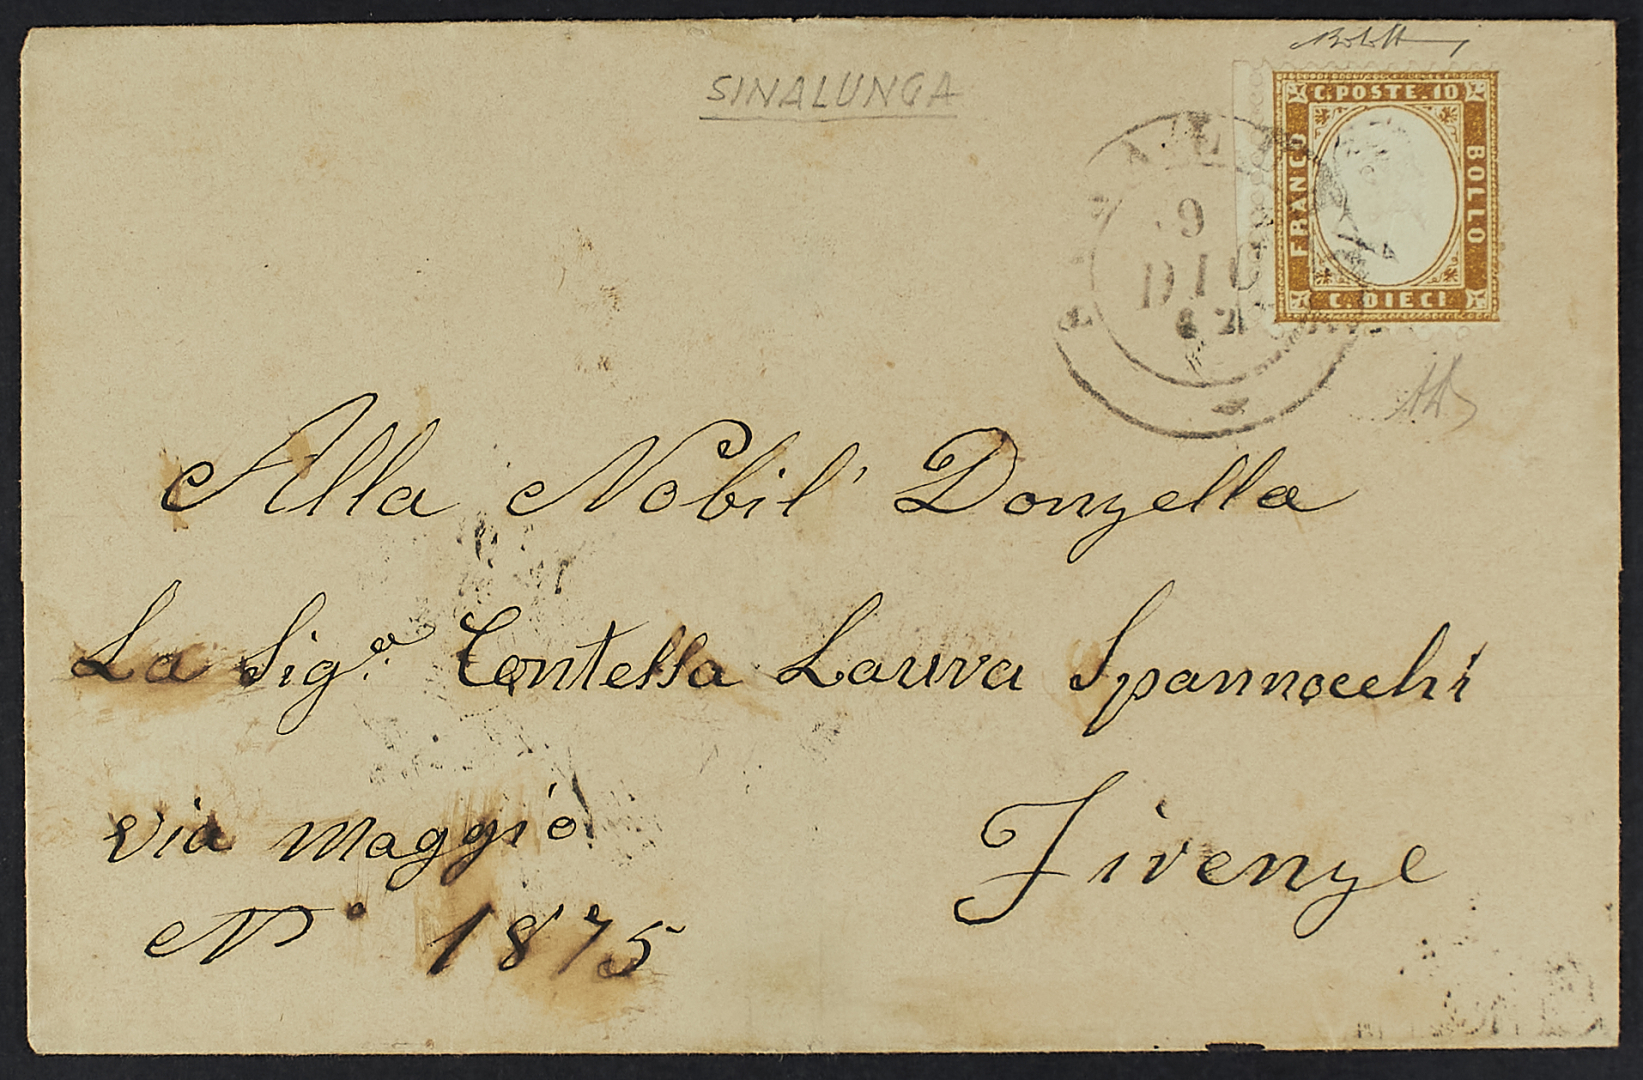 SINALUNGA
C. POSTE. 10
FRANCO
BOLLO
C. DIECI
9
DIC
62
Alla Nobil' Donzella
La Sig.ª Contessa Laura Spannocchi
via Maggió
Firenze
N° 1875